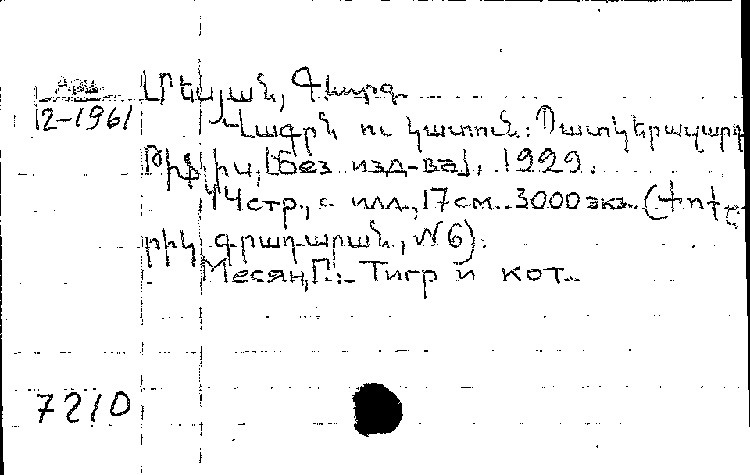 Արմ.
12-1961
Մեսյան, Գևորգ.
Վագրն ու կատուն: Պատկերազարդ
Թիֆլիս, [без изд-ва], 1929.
14 стр., с илл., 17 см. 3000 экз. (Փոքր-
րիկ գրադարան, №6).
Месян, Г.: Тигр и кот.
7210